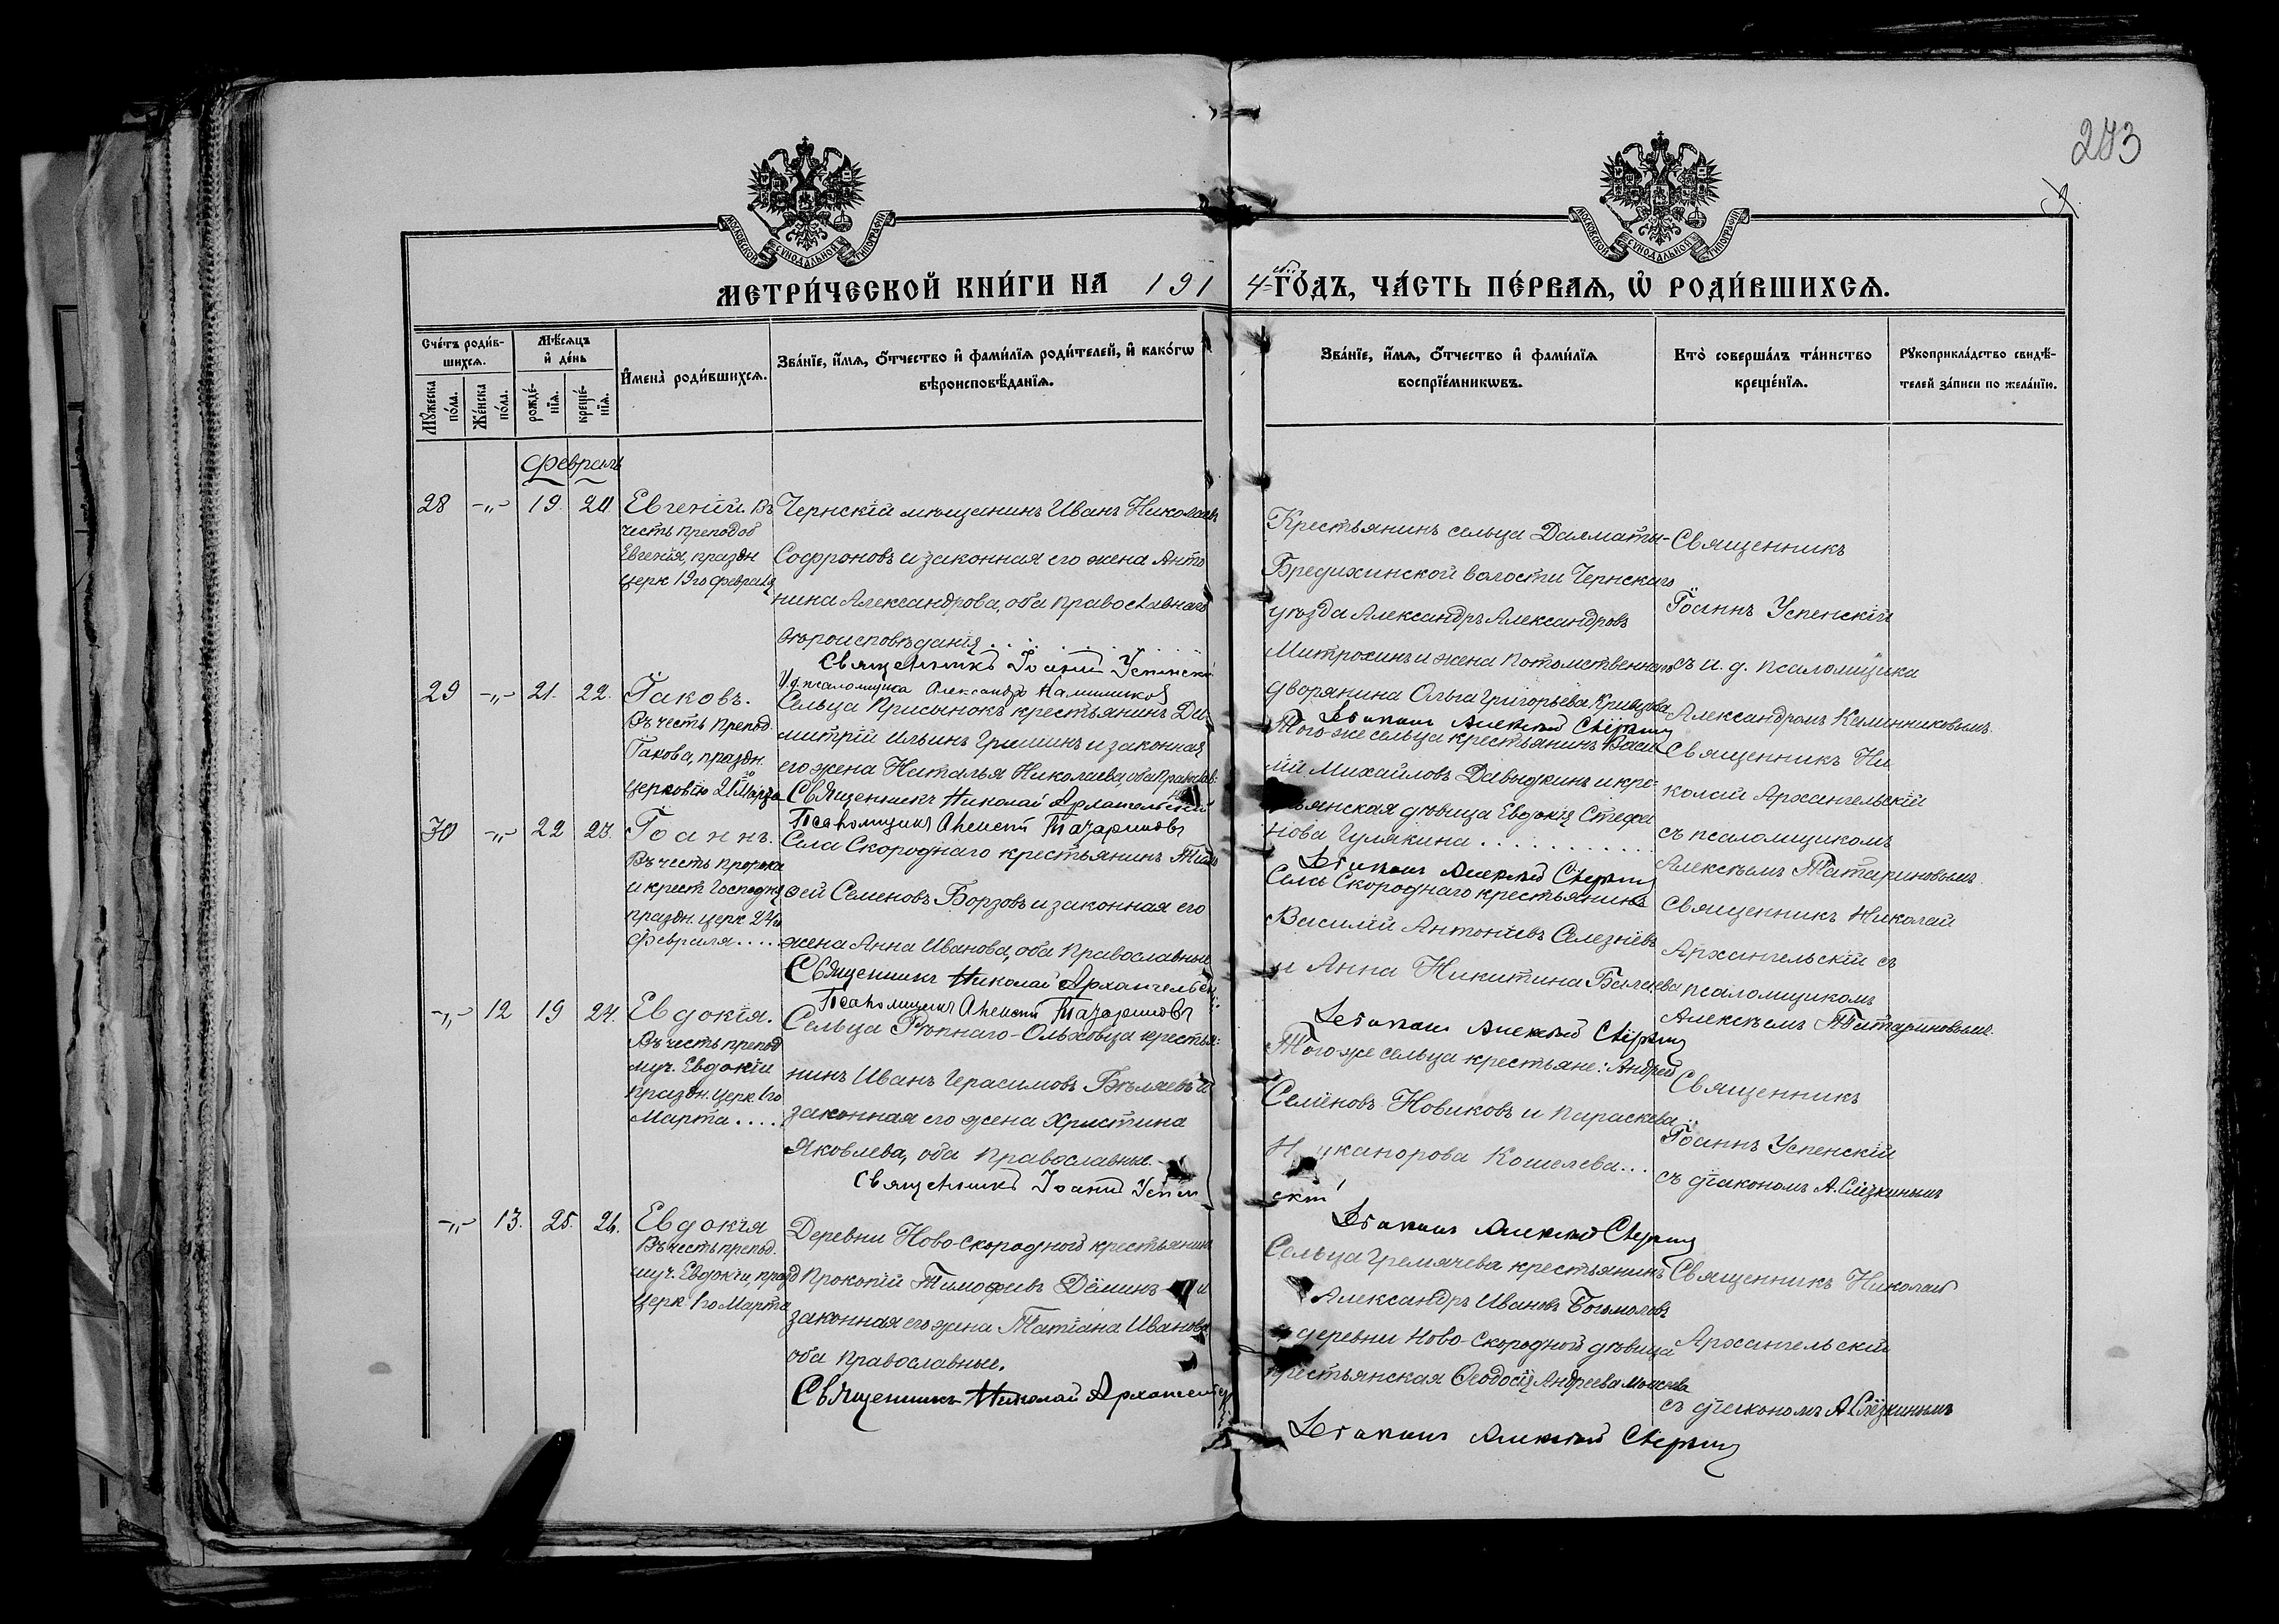 273
МОСКОВСКОЙ СѴНОДАЛЬНОЙ ТИПОГРАФІИ
МОСКОВСКОЙ СѴНОДАЛЬНОЙ ТИПОГРАФІИ
МЕТРИ́ЧЕСКОЙ КНИ́ГИ НА 1914 ГО́ДЪ, ЧА́СТЬ ПЕ́РВАѦ, Ѡ҆ РОДИ́ВШИХСѦ.
Сче́тъ роди́в-
шихсѧ.
Мꙋ́жеска
по́ла.
Же́нска
по́ла.
Мѣ́сѧцъ
и҆ де́нь
рожде́-
нїѧ.
креще́-
нїѧ.
И҆мена̀ роди́вшихсѧ.
Зва́нїе, и҆́мѧ, ѻ҆́тчество и҆ фами́лїѧ роди́телей, и҆ како́гѡ
вѣроисповѣ́данїѧ.
Зва́нїе, и҆́мѧ, ѻ҆́тчество и҆ фами́лїѧ
воспрїе́мникѡвъ.
Кто̀ соверша́лъ та́инство
креще́нїѧ.
Рꙋкоприкла́дство свидѣ́-
телей за́писи по жела́нїю.
Февраль
28 -„- 19. 20.
Евгеній. Въ
честь преподоб
Евгенія, праздн
церк 19го февраля
Чернскій мѣщанинъ Иванъ Николаевъ
Софроновъ и законная его жена Анто
нина Александрова, оба православнаго
вѣроисповѣданія . . . . . . . . .
Священникъ Іоаннъ Успенскій
И.д. псаломщика Александръ Калинниковъ
Крестьянинъ сельца Далматы-
Бредихинской волости Чернскаго
уѣзда Александръ Александровъ
Митрохинъ и жена потомственнаго
дворянина Ольга Григорьева Кривцова
Священникъ
Іоаннъ Успенскій
съ и. д. псаломщика
Александромъ Калинниковымъ.
29 -„- 21. 22.
Іаковъ.
Въ честь препод.
Іакова, праздн.
церковію 21го Марта
Сельца Присынокъ крестьянинъ Ди-
митрій Ильинъ Гришинъ и законная
его жена Наталья Николаева, оба православ-
Священникъ Николай Архангельский
Псаломщикъ Алексѣй Татариновъ
Діаконъ Алексѣй
Того-же сельца крестьянинъ Васи
лій Михайловъ Давыдкинъ и кре-
стьянская дѣвица Евдокія Стефа
нова Гулякина . . . . . . . . . . .
Діаконъ Алексѣй
Священникъ Ни
колай Архангельскій
съ псаломщикомъ
Алексѣемъ Татариновымъ.
30 -„- 22 23.
Іоаннъ.
Въ честь пророка
и крест Господня
праздн. церк 24го
Февраля . . . . .
Села Скороднаго крестьянинъ Тимо
фей Семеновъ Борзовъ и законная его
жена Анна Иванова, оба православные
Священникъ Николай Архангельскій
Псаломщикъ Алексѣй Татариновъ
Села Скороднаго крестьянинъ
Василій Антоніевъ Селезнёвъ
и Анна Никитина
Діаконъ Алексѣй
Священникъ Николай
Архангельскій съ
псаломщикомъ
Алексѣемъ Татариновымъ.
-„- 12 19 24.
Евдокія.
Въ честь препод
муч. Евдокіи
праздн. церк. 1го
Марта . . . .
Сельца Рѣпнаго-Ольховца крестья-
нинъ Иванъ Герасимовъ Бѣляевъ и
законная его жена Христина
Яковлева, оба православные.
Священникъ Іоаннъ Успен
скій
Того же сельца крестьяне: Андрей
Семёновъ Новиковъ и Параскева
Никанорова Кошелева...
Діаконъ Алексѣй
Священникъ
Іоаннъ Успенскій
съ діакономъ А.
-„- 13. 25. 26.
Евдокія
Въ честь препод.
муч. Евдокіи, празд
церк 1го Марта
Деревни Ново-Скородной крестьянинъ
Прокопій Тимофѣевъ Дёминъ и
законная его жена Татіана Иванова
оба православные.
Священникъ Николай Архангельскій
Сельца Гремячева крестьянинъ
Александръ Ивановъ Богомоловъ
и деревни Ново-Скородной дѣвица
крестьянская Ѳеодосія Андреева
Діаконъ Алексѣй
Священникъ Николай
Архангельскій
съ діакономъ А.